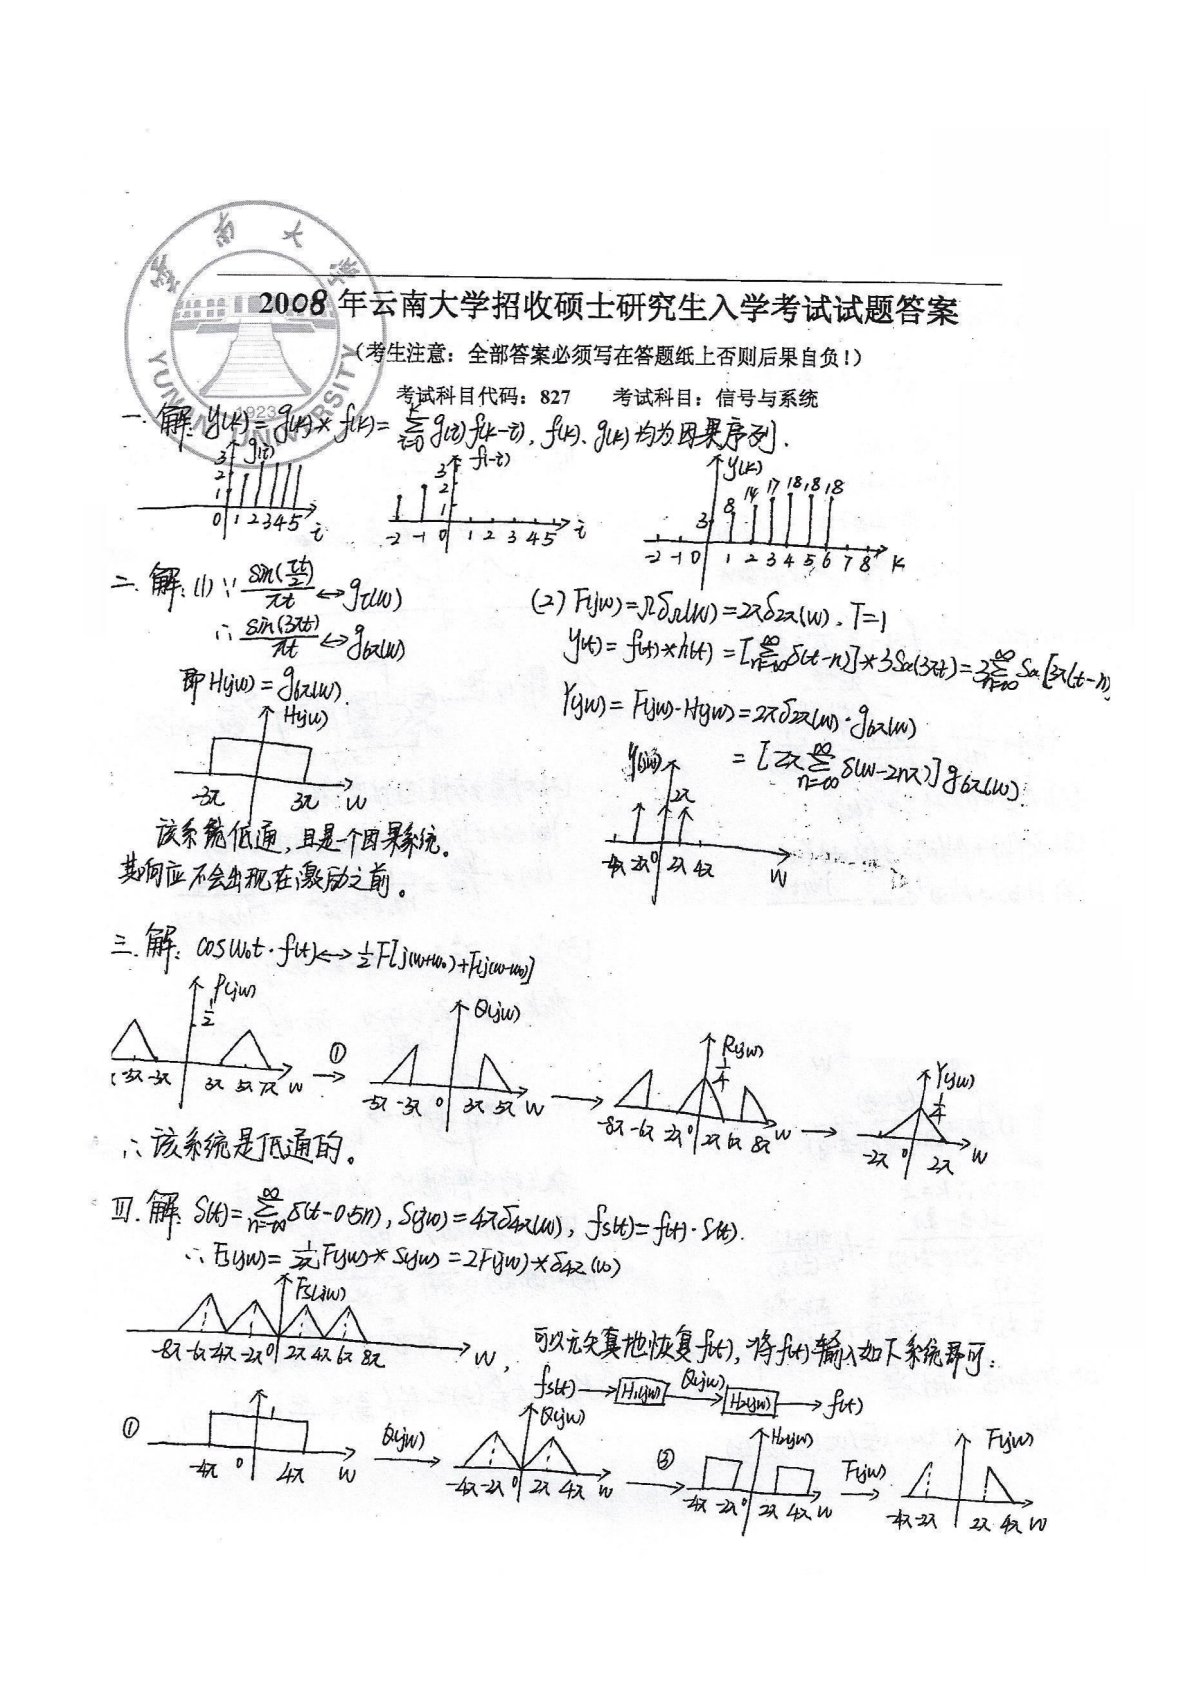 云南大学
YUNNAN UNIVERSITY
1923
2008年云南大学招收硕士研究生入学考试试题答案
（考生注意：全部答案必须写在答题纸上否则后果自负！）
考试科目代码：827 考试科目：信号与系统
一. 解: y(k)=g(k)*f(k)=∑_{i=0}^{k} g(i)f(k-i), f(k)、g(k)均为因果序列.
3 2 1 g(i) 0 1 2 3 4 5 i
3 2 1 f(-i) -2 -1 0 1 2 3 4 5 i
y(k) 3 8 14 17 18 18 18 -2 -1 0 1 2 3 4 5 6 7 8 k
二. 解: (1) ∵ sin(τt/2)/πt ↔ g_τ(w)
∴ sin(3πt)/πt ↔ g_{6π}(w)
即 H(jw)=g_{6π}(w).
H(jw) -3π 3π w
该系统低通, 且是一个因果系统.
其响应不会出现在激励之前。
(2) F(jw)=Ωδ_Ω(w)=2πδ_{2π}(w), T=1
y(t)=f(t)*h(t)=[∑_{n=-∞}^{∞} δ(t-n)]*3Sa(3πt)=3∑_{n=-∞}^{∞} Sa[3π(t-n)
Y(jw)=F(jw)·H(jw)=2πδ_{2π}(w)·g_{6π}(w)
=[2π∑_{n=-∞}^{∞} δ(w-2nπ)]g_{6π}(w)
Y(jw) 2π -4π -2π 0 2π 4π w
三. 解: cosw₀t·f(t)↔½F[j(w+w₀)+F(j(w-w₀)]
P(jw) 1/2 -5π -3π 3π 5π 7π w
① → Q(jw) -5π -3π 0 3π 5π w
→ R(jw) 1/4 -8π -6π -2π 0 2π 6π 8π w
→ Y(jw) 1/4 -2π 0 2π w
∴ 该系统是低通的。
四. 解: S(t)=∑_{n=-∞}^{∞} δ(t-0.5n), S(jw)=4πδ_{4π}(w), f_s(t)=f(t)·S(t).
∴ F_s(jw)=1/2π F(jw)*S(jw)=2F(jw)*δ_{4π}(w)
F_s(jw) -8π -6π -4π -2π 0 2π 4π 6π 8π w,
可以无失真地恢复f(t), 将f(t)输入如下系统即可:
f_s(t) → H₁(jw) Q(jw) → H₂(jw) → f(t)
① 1 -4π 0 4π w
Q(jw) → Q(jw) -4π -2π 0 2π 4π w
③ → H₂(jw) -4π -2π 0 2π 4π w
F(jw) → F(jw) -4π -2π 2π 4π w